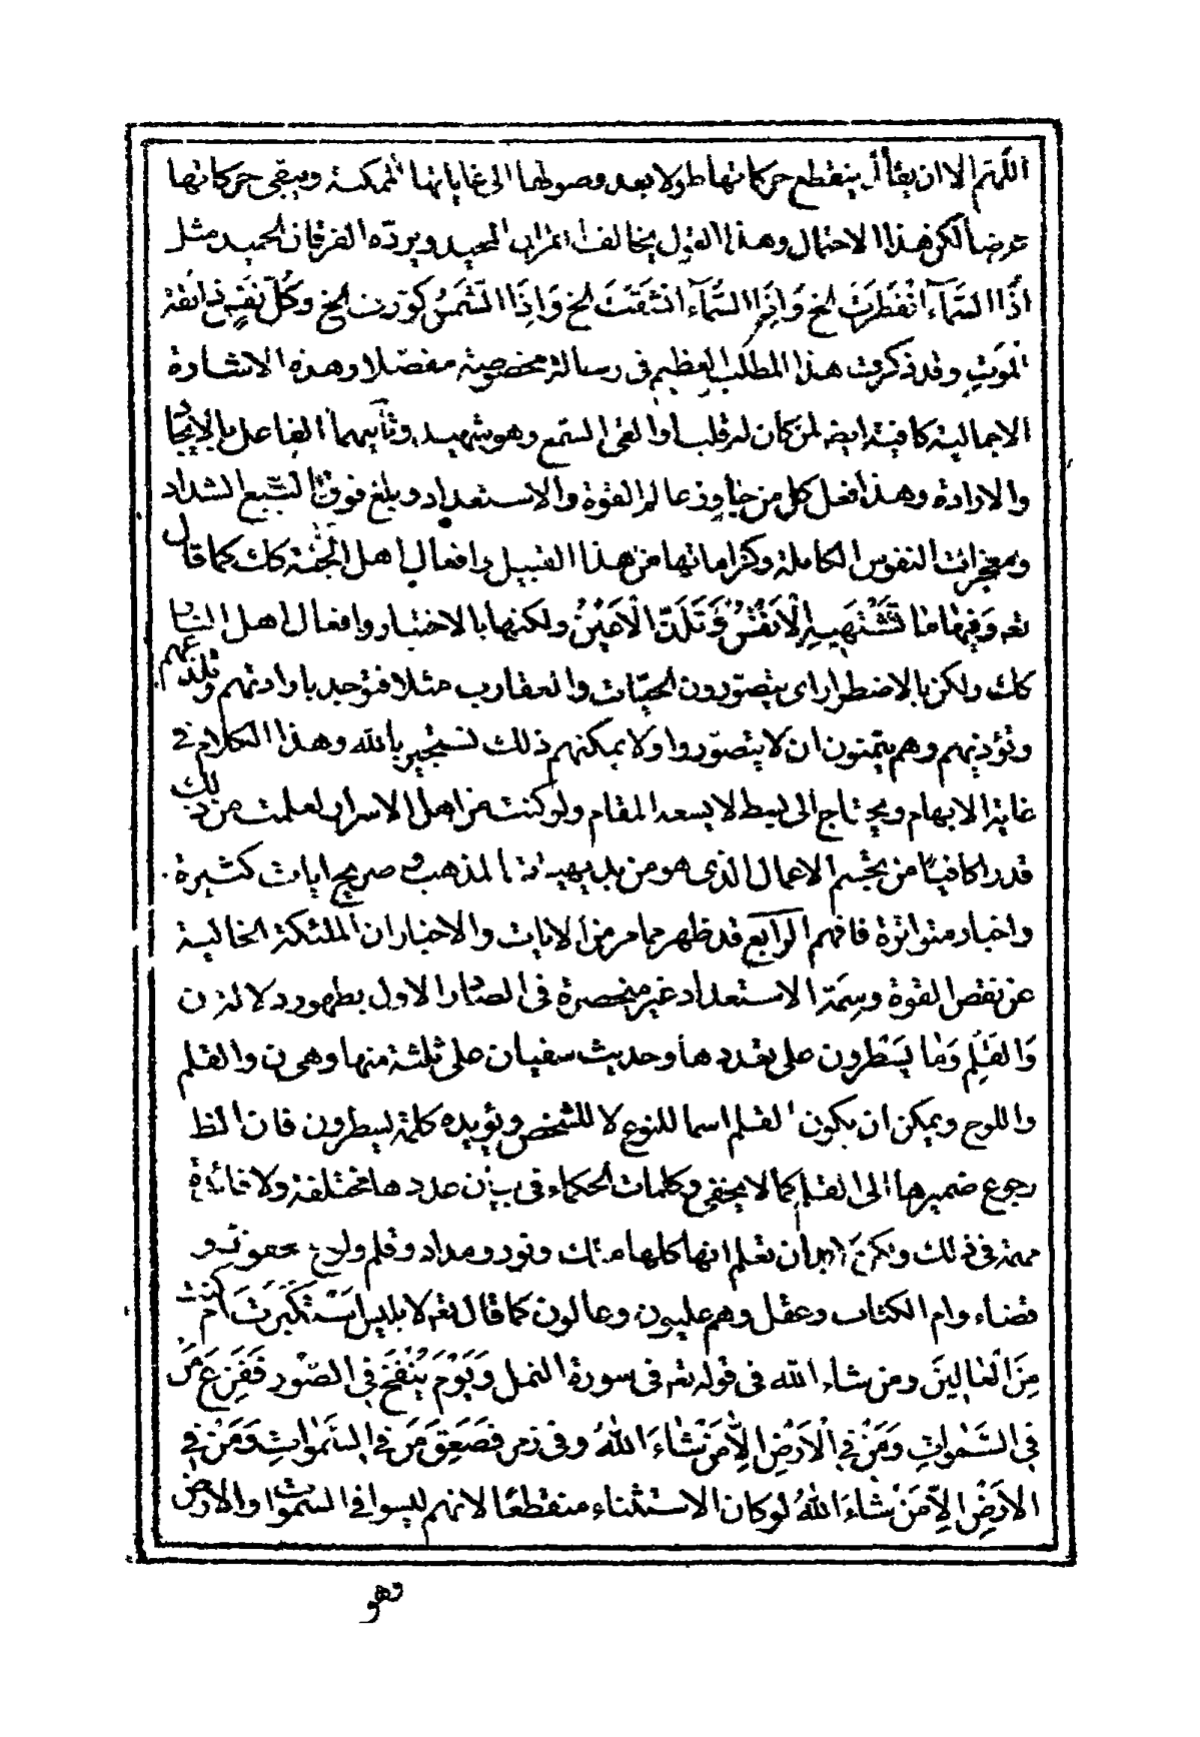 اللّهم الا ان يقال ينقطع حركاتها طولا بعد وصولها الى غاياتها الممكنة ويبقى حركاتها
عرضا لكن هذا الاحتمال وهذا القول يخالف القران المجيد ويردّه الفرقان الحميد مثل
اذَا السَّمَآء انْفَطَرَتْ الخ وَاِذَا السَّمَآء انْشَقَّتْ الخ وَاِذَا الشَّمْسُ كوّرت الخ وكُلُّ نَفْسٍ ذائقة
الْمَوْتِ وقد ذكرت هذا المطلب العظيم فى رسالة مخصوصة مفصّلا وهذه الاشارة
الاجمالية كافية ايضا لمن كان له قلب او القى السمع وهو شهيد وثانيهما الفاعل بالايجاد
والارادة وهذا فعل كل من جاوز عالم القوة والاستعداد وبلغ فوق السّبع الشداد
ومعجزات النفوس الكاملة وكراماتها من هذا القبيل وافعال اهل الجنّة كك كما قال
تعه وَفِيهٰا مٰا تَشْتَهِيهِ الْاَنْفُسُ وَتَلَذّ الْاَعْيُنُ ولكنها بالاختيار وافعال اهل النار
كك ولكن بالاضطرار اى يتصوّرون الحيّات والعقارب مثلا فتوجد بارادتهم وتلذعهم
وتؤذيهم وهم يتمنون ان لا يتصوّروا ولا يمكنهم ذلك نستجير بالله وهذا الكلام فى
غاية الابهام ويحتاج الى بسط لا يسعه المقام ولو كنت من اهل الاسرار لعلمت من ذلك
قدرا كافيا من تجسّم الاعمال الذى هو من بديهيات المذهب و صريح ايات كثيرة
واخبار متواترة فافهم الرابع قد ظهر مما مر من الايات والاخبار ان الملئكة الخالية
عن نقص القوة وسِمَة الاستعداد غير منحصرة فى الصادر الاول بظهور دلالة ن
وَالقَلَمِ وَمٰا يَسْطُرون على تعددها وحديث سفيان على ثلثة منها وهى ن والقلم
واللوح ويمكن ان يكون القلم اسما للنوع لا للشخص ويؤيده كلمة يسطرون فان الظ
رجوع ضميرها الى القلم كما لا يخفى وكلمات الحكماء فى بيان عددها مختلفة ولا فائدة
مهمة فى ذلك ولكن ان تعلم انها كلها ملك ونور ومداد وقلم ولوح محفوظ و
قضاء وام الكتاب وعقل وهم عليون وعالون كما قال تعه لابليس اَسْتَكْبَرْتَ اَمْ كُنْتَ
مِنَ الْعٰالِينَ ومن شاء الله فى قوله تعه فى سورة النمل وَيَوْمَ يُنْفَخُ فِى الصّورِ فَفَزِعَ مَنْ
فِى السَّمٰوٰاتِ وَمَنْ فِى الْاَرْضِ اِلّٰا مَنْ شٰاءَ اللّٰهُ وفى زمر فَصَعِقَ مَنْ فِى السَّمٰوٰاتِ وَمَنْ فِى
الْاَرْضِ اِلّٰا مَنْ شٰاءَ اللّٰهُ لو كان الاستثناء منقطعا لانهم ليسوا فى السموات والارض
وهو